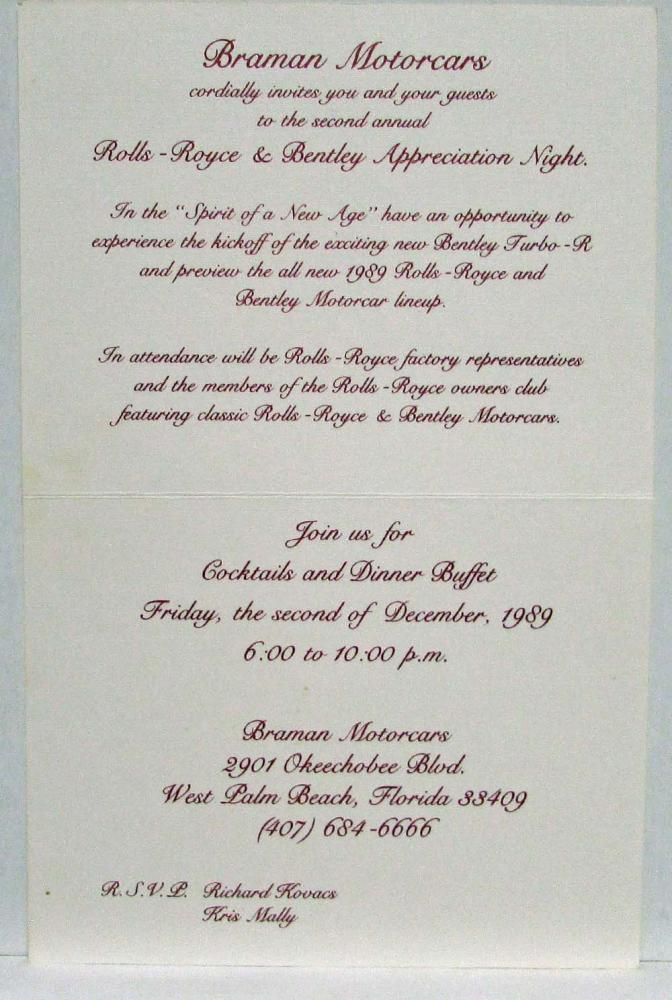 Braman Motorcars
cordially invites you and your guests
to the second annual
Rolls-Royce & Bentley Appreciation Night.
In the "Spirit of a New Age" have an opportunity to
experience the kickoff of the exciting new Bentley Turbo-R
and preview the all new 1989 Rolls-Royce and
Bentley Motorcar lineup.
In attendance will be Rolls-Royce factory representatives
and the members of the Rolls-Royce owners club
featuring classic Rolls-Royce & Bentley Motorcars.
Join us for
Cocktails and Dinner Buffet
Friday, the second of December, 1989
6:00 to 10:00 p.m.
Braman Motorcars
2901 Okeechobee Blvd.
West Palm Beach, Florida 33409
(407) 684-6666
R.S.V.P. Richard Kovacs
Kris Mally